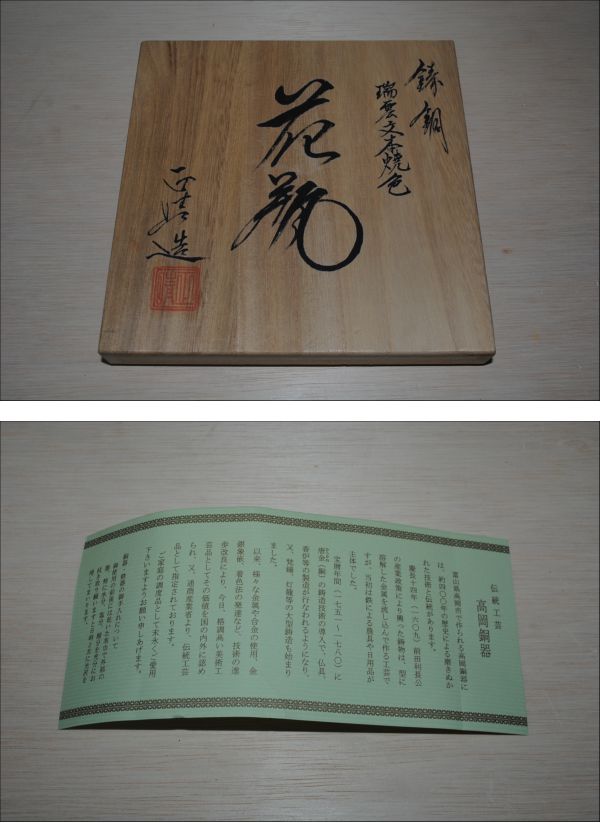 鋳銅
瑞雲文本焼色
花瓶
正晴造
伝統工芸
高岡銅器
富山県高岡市で作られる高岡銅器に
は、約四〇〇年の歴史による磨きぬか
れた技術と伝統があります。
慶長十四年(一六〇九)前田利長公
の産業政策により興った鋳物は、型に
溶解した金属を流し込んで作る工芸で
すが、当初は鉄による農具や日用品が
主体でした。
宝暦年間(一七五一〜一七八〇)に
唐金(銅)の鋳造技術の導入で、仏具、
香炉等の製造が行なわれるようになり、
又、梵鐘、灯籠等の大型鋳造も始まり
ました。
以来、様々な金属や合金の使用、金
銀象嵌、着色法の発達など、技術の進
歩改良により、今日、格調高い美術工
芸品としてその価値を国の内外に認め
られ、又、通商産業省より、伝統工芸
品として指定されております。
ご家庭の調度品として末永くご愛用
下さいますようお願い申しあげます。